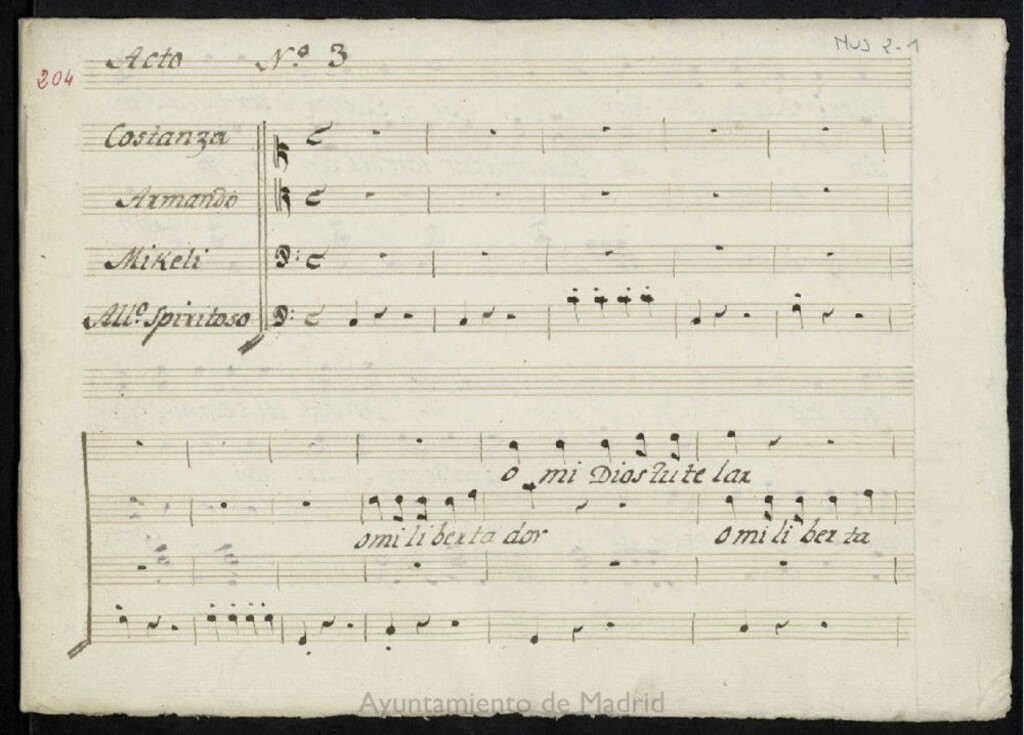 Acto Nº 3
Mus 2-1
204
Costanza
Armando
Mikeli
Allº Spiritoso
o mi Dios tu te lar
o mi li ber ta dor o mi li ber ta
Ayuntamiento de Madrid